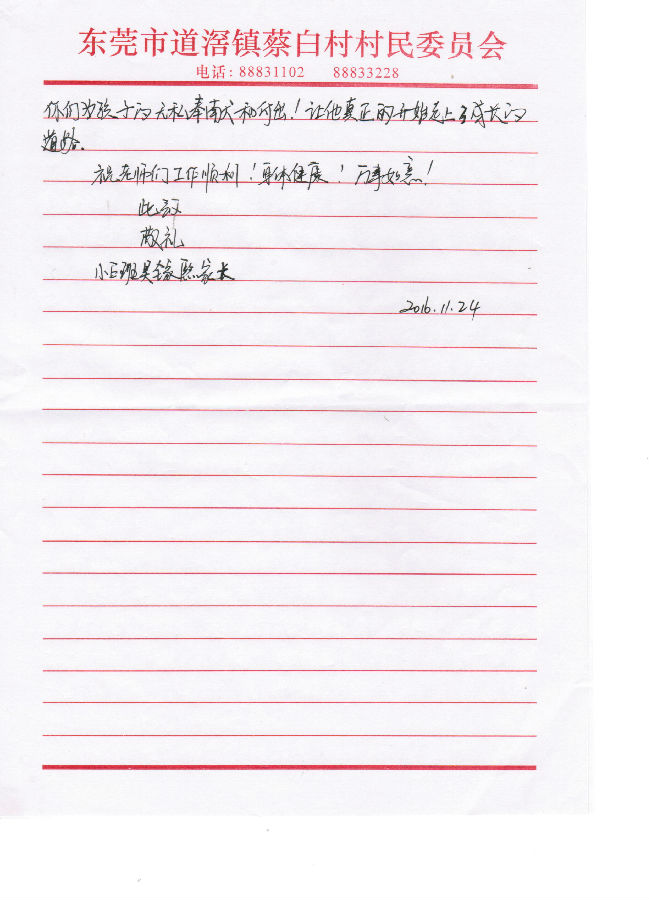 东莞市道滘镇蔡白村村民委员会
电话：88831102 88833228
你们为孩子的无私奉献和付出！让他真正的开始走上了成长的
道路。
祝老师们工作顺利！身体健康！万事如意！
此致
敬礼
小班吴家长
2016.11.24